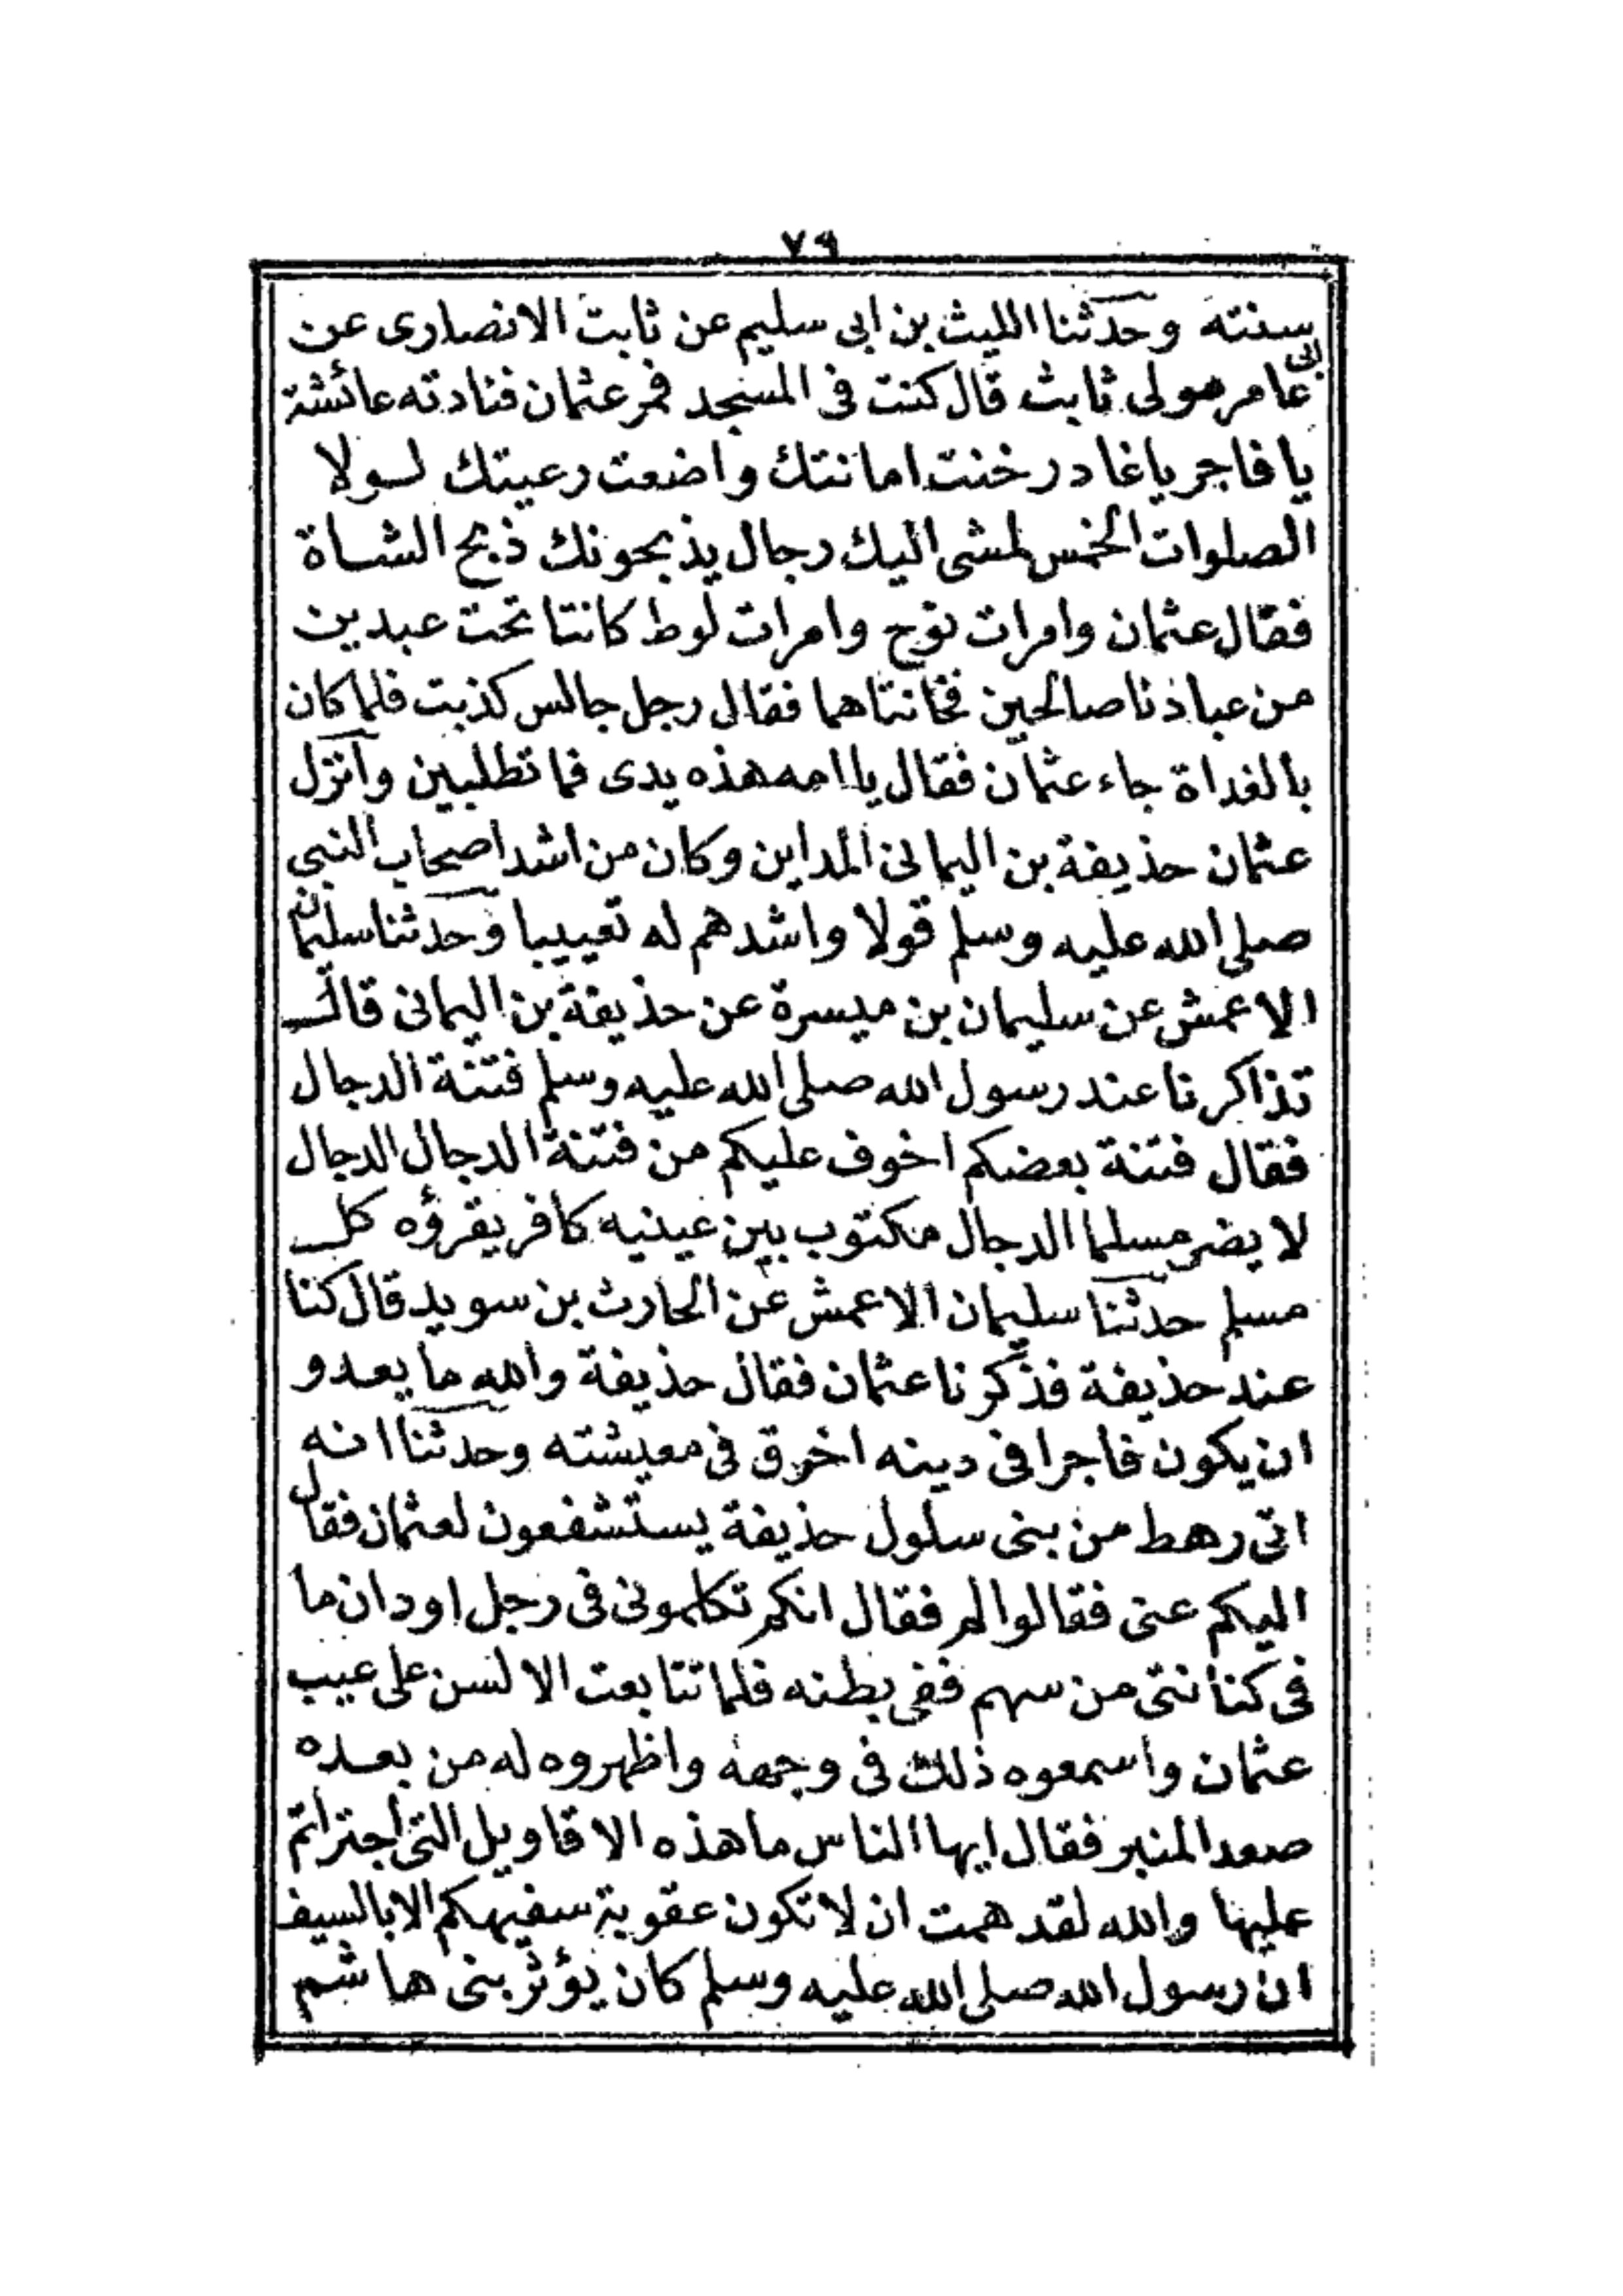 ٧٩
سنته وحدثنا الليث بن ابى سليم عن ثابت الانصارى عن
ابى
عامر مولى ثابث قال كنت فى المسنجد فمر عثمان فنادته عائشة
يا فاجر يا غادر خنت امانتك واضعت رعيتك لولا
الصلوات الخمس لمشى اليك رجال يذبحونك ذبح الشاة
فقال عثمان وامرات نوح وامرات لوط كانتا تحت عبدين
من عبادنا صالحين فخانتاهما فقال رجل جالس كذبت فلما كان
بالغداة جاء عثمان فقال يا امه هذه يدى فما تطلبين وانزل
عثمان حذيفة بن اليمانى المداين وكان من اشد اصحاب النبى
صلى الله عليه وسلم قولا واشدهم له تعييبا وحدثنا سليمان
الاعمش عن سليمان بن ميسرة عن حذيفة بن اليمانى قال
تذاكرنا عند رسول الله صلى الله عليه وسلم فتنة الدجال
فقال فتنة بعضكم اخوف عليكم من فتنة الدجال الدجال
لا يضر مسلما الدجال مكتوب بين عينيه كافر يقرؤه كل
مسلم حدثنا سليمان الاعمش عن الحارث بن سويد قال كنا
عند حذيفة فذكرنا عثمان فقال حذيفة والله ما يعدو
ان يكون فاجرا فى دينه اخرق فى معيشته وحدثنا انه
اتى رهط من بنى سلول حذيفة يستشفعون لعثمان فقال
اليكم عنى فقالوا لم فقال انكم تكلمونى فى رجل اود ان ما
فى كنانتى من سهم ففى بطنه فلما تتابعت الالسن على عيب
عثمان واسمعوه ذلك فى وجهه واظهروه له من بعده
صعد المنبر فقال ايها الناس ما هذه الاقاويل التى اجتراتم
عليها والله لقد همت ان لا تكون عقوبة سفيهكم الا بالسيف
ان رسول الله صلى الله عليه وسلم كان يؤثر بنى هاشم